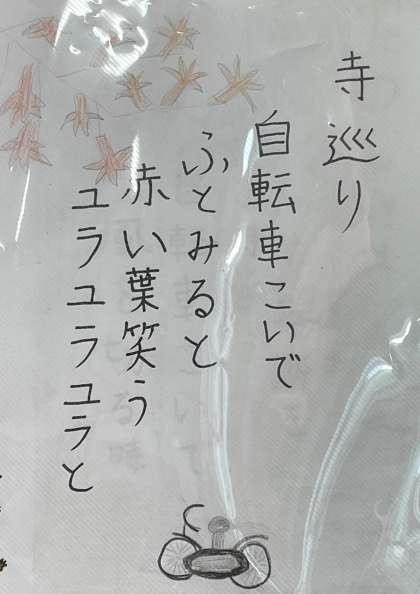 寺巡り
自転車こいで
ふとみると
赤い葉笑う
ユラユラユラと